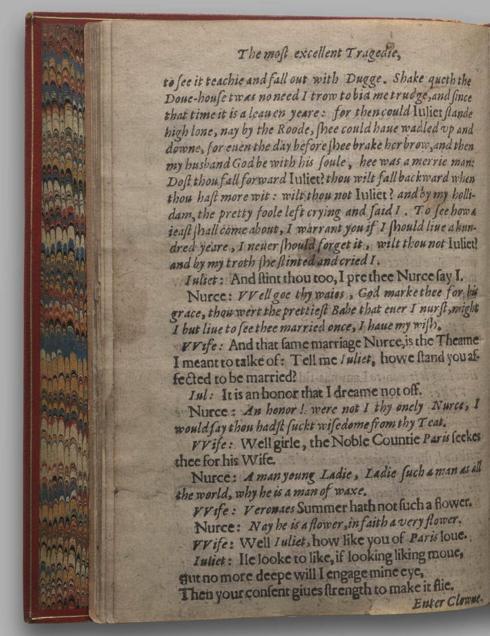 The most excellent Tragedie,
to see it teachie and fall out with Dugge. Shake quoth the
Doue-house twas no need I trow to bid me trudge, and since
that time it is a leauen yeare: for then could Iuliet stande
high lone, nay by the Roode, shee could haue wadled vp and
downe, for euen the day before shee brake her brow, and then
my husband God be with his soule, hee was a merrie man:
Dost thou fall forward Iuliet? thou wilt fall backward when
thou hast more wit: wilt thou not Iuliet? and by my holli-
dam, the pretty foole left crying and said I. To see how a
ieast shall come about, I warrant you if I should liue a hun-
dred yeare, I neuer should forget it, wilt thou not Iuliet?
and by my troth she stinted and cried I.
Iuliet: And stint thou too, I pre thee Nurce say I.
Nurce: VVell goe thy waies, God marke thee for his
grace, thou wert the prettiest Babe that euer I nurst, might
I but liue to see thee married once, I haue my wish.
VVife: And that same marriage Nurce, is the Theame
I meant to talke of: Tell me Iuliet, howe stand you af-
fected to be married?
Iul: It is an honor that I dreame not off.
Nurce: An honor! were not I thy onely Nurce, I
would say thou hadst suckt wisedome from thy Teat.
VVife: Well girle, the Noble Countie Paris seekes
thee for his Wife.
Nurce: A man young Ladie, Ladie such a man as all
the world, why he is a man of waxe.
VVife: Veronaes Summer hath not such a flower.
Nurce: Nay he is a flower, in faith a very flower.
VVife: Well Iuliet, how like you of Paris loue.
Iuliet: Ile looke to like, if looking liking moue,
But no more deepe will I engage mine eye,
Then your consent giues strength to make it flie.
Enter Clowne.